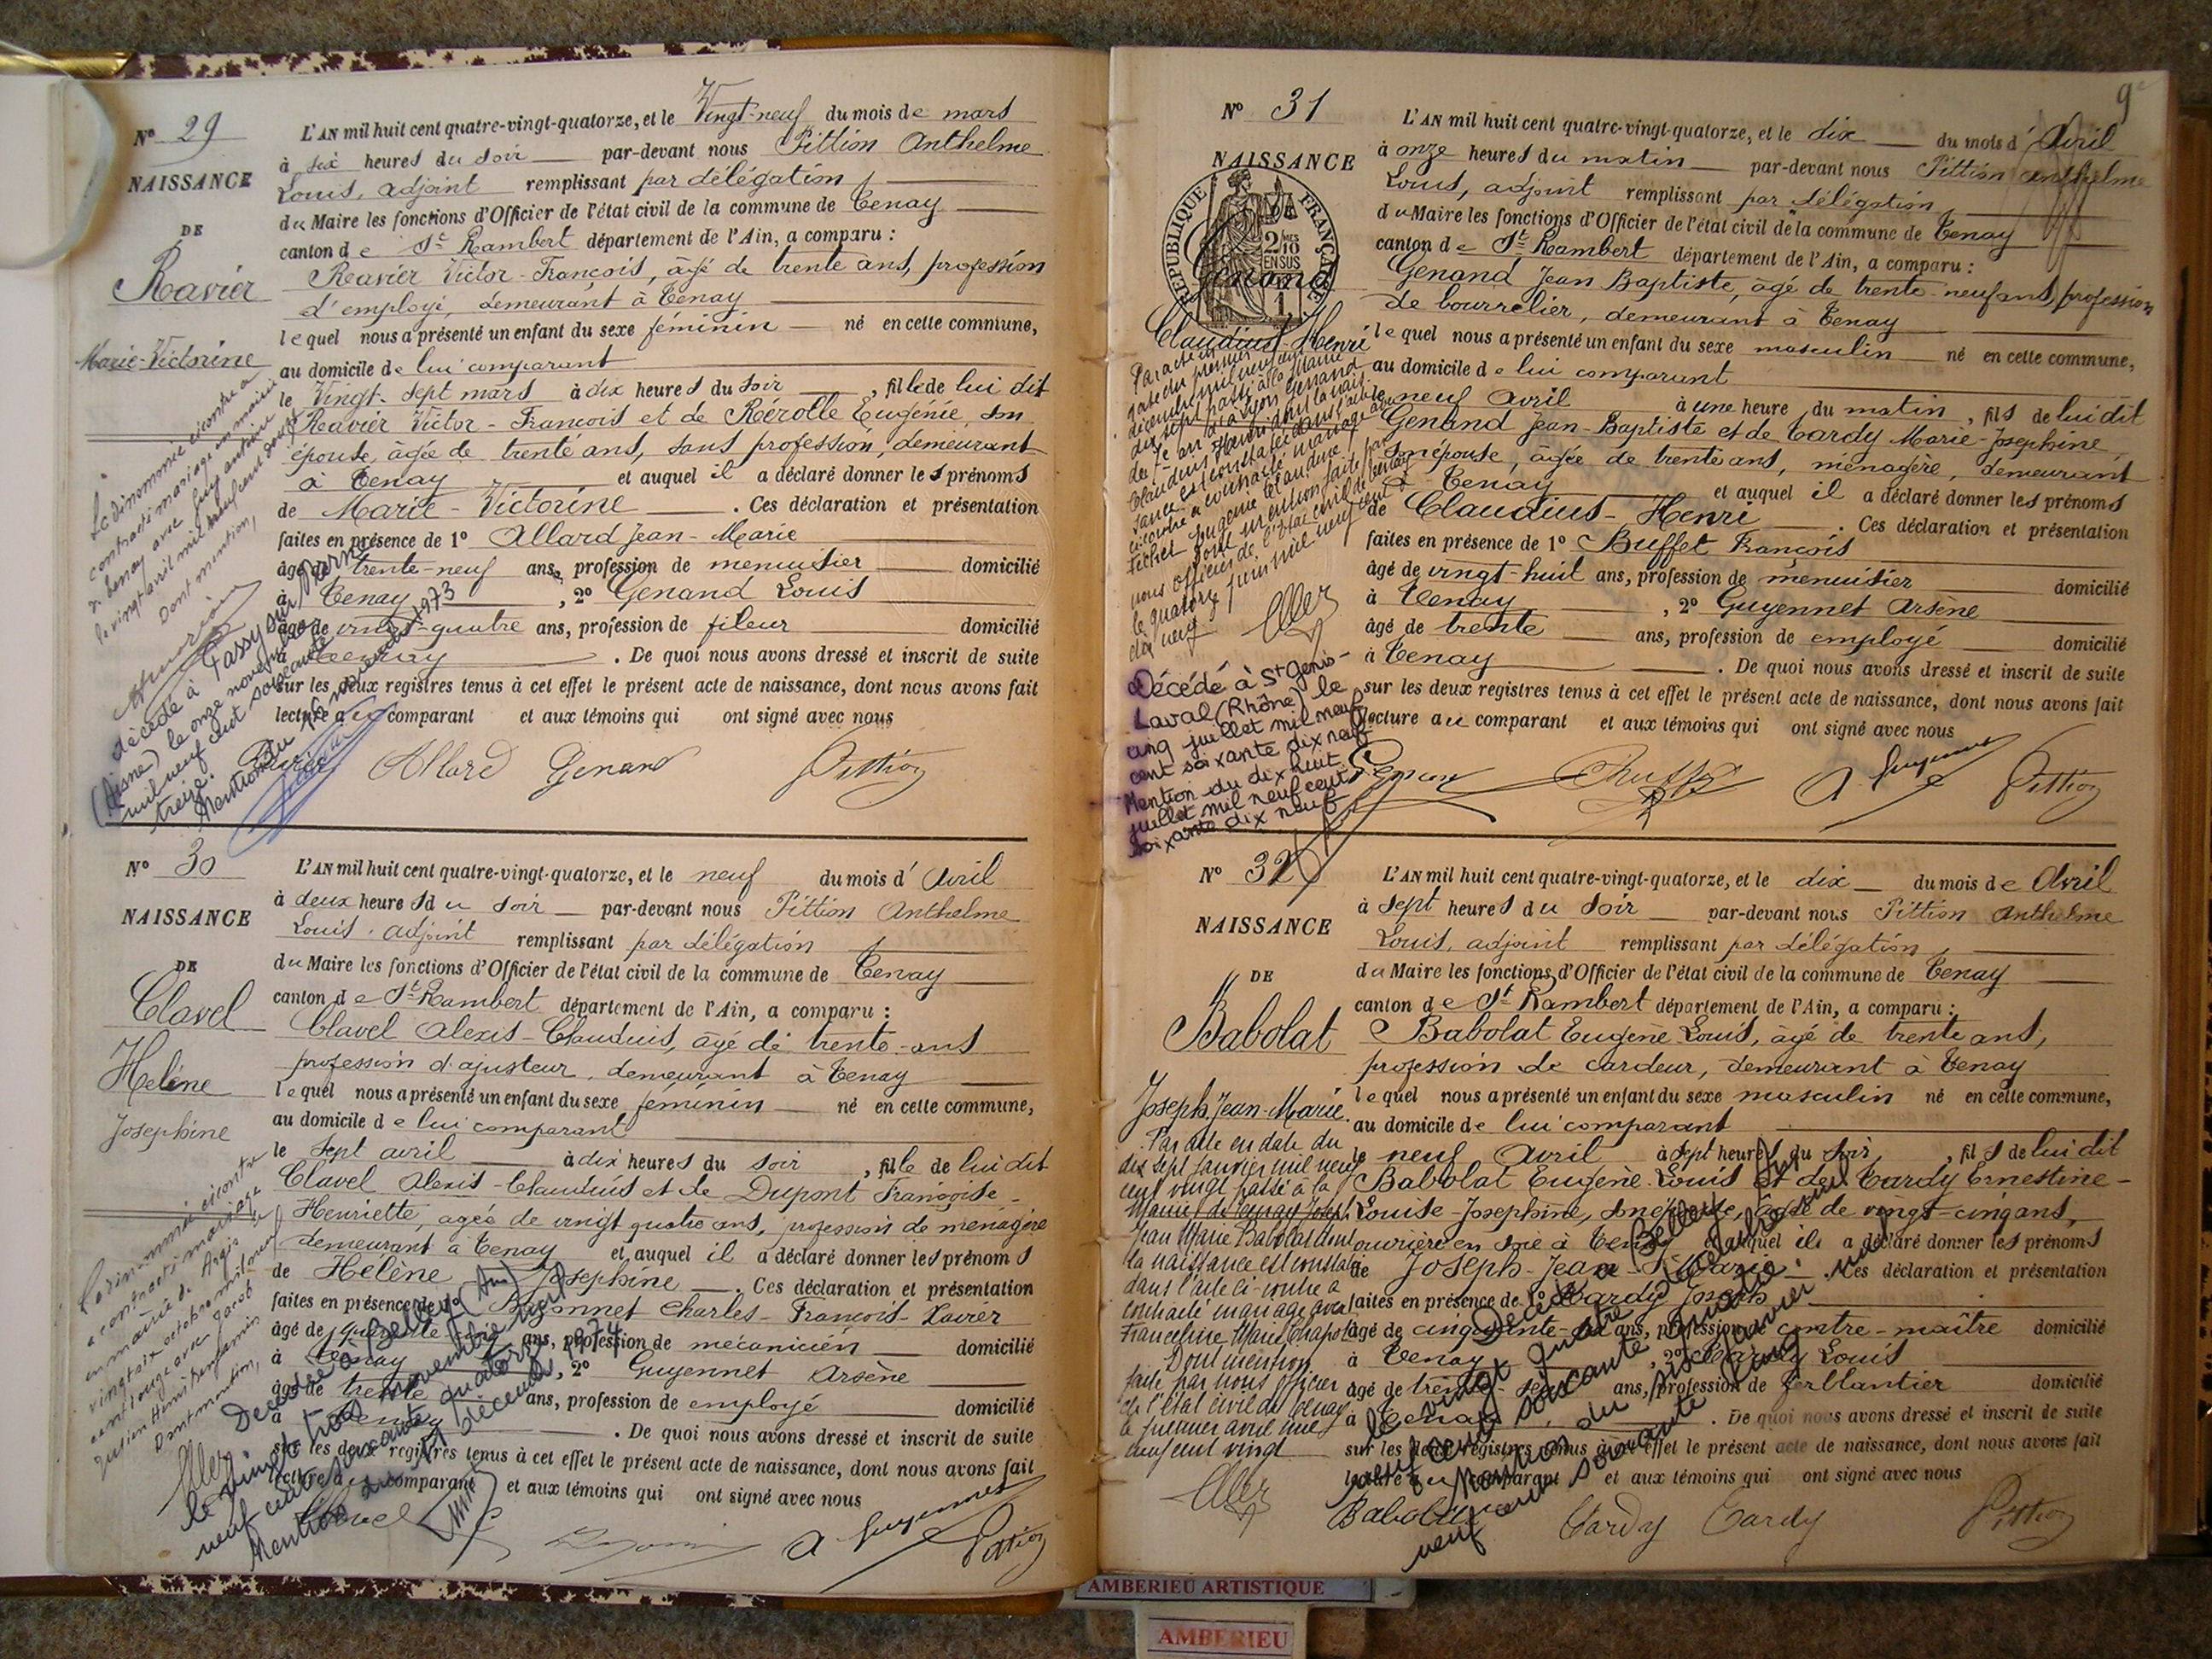 N° 29
NAISSANCE
DE
Ravier
Marie-Victorine
L'AN mil huit cent quatre-vingt-quatorze, et le Vingt-neuf du mois de mars
à six heures du soir par-devant nous Pittion Anthelme
Louis, adjoint remplissant par délégation
du Maire les fonctions d'Officier de l'état civil de la commune de Tenay
canton de St Rambert département de l'Ain, a comparu :
Ravier Victor-François, âgé de trente ans, profession
d'employé, demeurant à Tenay
lequel nous a présenté un enfant du sexe féminin né en cette commune,
au domicile de lui comparant
le Vingt-sept mars à dix heures du soir, fille de lui dit
Ravier Victor-François et de Rérolle Eugénie, son
épouse, âgée de trente ans, sans profession, demeurant
à Tenay et auquel il a déclaré donner les prénoms
de Marie-Victorine. Ces déclaration et présentation
faites en présence de 1° Allard Jean-Marie
âgé de trente-neuf ans, profession de menuisier domicilié
à Tenay, 2° Genand Louis
âgé de vingt-quatre ans, profession de fileur domicilié
à Tenay. De quoi nous avons dressé et inscrit de suite
sur les deux registres tenus à cet effet le présent acte de naissance, dont nous avons fait
lecture au comparant et aux témoins qui ont signé avec nous
La dénommée ci-contre a
contracté mariage en mairie
de Tenay avec
le vingt avril mil neuf cent
Dont mention,
décédée à Passy sur Marne
(Aisne) le onze novembre
mil neuf cent soixante
treize.
Mention du 16 novembre 1973
Ravier Allard Genand Pittion
N° 30
NAISSANCE
DE
Clavel
Helène
Josephine
L'AN mil huit cent quatre-vingt-quatorze, et le neuf du mois d'Avril
à deux heures du soir par-devant nous Pittion Anthelme
Louis, adjoint remplissant par délégation
du Maire les fonctions d'Officier de l'état civil de la commune de Tenay
canton de St Rambert département de l'Ain, a comparu :
Clavel Alexis-Claudius, âgé de trente-ans
profession d'ajusteur, demeurant à Tenay
lequel nous a présenté un enfant du sexe féminin né en cette commune,
au domicile de lui comparant
le sept avril à dix heures du soir, fille de lui dit
Clavel Alexis-Claudius et de Dupont Françoise-
Henriette, agée de vingt quatre ans, profession de ménagère
demeurant à Tenay et auquel il a déclaré donner les prénoms
de Hélène Josephine. Ces déclaration et présentation
faites en présence de 1° Charles-François-Xavier
âgé de quarante ans, profession de mécanicien domicilié
à Tenay, 2° Guyennet Arsène
âgé de trente ans, profession de employé domicilié
à Tenay. De quoi nous avons dressé et inscrit de suite
sur les deux registres tenus à cet effet le présent acte de naissance, dont nous avons fait
lecture au comparant et aux témoins qui ont signé avec nous
La dénommée ci-contre
a contracté mariage
en mairie de
vingt six octobre mil neuf
cent avec Jacob
Julien Henri Benjamin
Dont mention,
Décédée à Belley (Ain)
le vingt trois novembre mil
neuf cent soixante quatorze
Mention décembre 1974
Clavel A. Guyennet Pittion
9e
N° 31
NAISSANCE
DE
RÉPUBLIQUE FRANÇAISE
2/10
EN SUS
Genand
Claudius-Henri
L'AN mil huit cent quatre-vingt-quatorze, et le dix du mois d'Avril
à onze heures du matin par-devant nous Pittion Anthelme
Louis, adjoint remplissant par délégation
du Maire les fonctions d'Officier de l'état civil de la commune de Tenay
canton de St Rambert département de l'Ain, a comparu :
Genand Jean Baptiste, âgé de trente-neuf ans, profession
de bourrelier, demeurant à Tenay
lequel nous a présenté un enfant du sexe masculin né en cette commune,
au domicile de lui comparant
le neuf avril à une heure du matin, fils de lui dit
Genand Jean-Baptiste et de Tardy Marie-Josephine
son épouse, âgée de trente ans, ménagère, demeurant
à Tenay et auquel il a déclaré donner les prénoms
de Claudius-Henri. Ces déclaration et présentation
faites en présence de 1° Buffet François
âgé de vingt-huit ans, profession de menuisier domicilié
à Tenay, 2° Guyennet Arsène
âgé de trente ans, profession de employé domicilié
à Tenay. De quoi nous avons dressé et inscrit de suite
sur les deux registres tenus à cet effet le présent acte de naissance, dont nous avons fait
lecture au comparant et aux témoins qui ont signé avec nous
Par acte en
date du premier
décembre mil neuf cent
dix sept passé à la mairie
du 7e arrt de Lyon Genand
Claudius Henri dont la nais-
sance est constatée dans l'acte
ci-contre a contracté mariage avec
Eugénie Claudine
Dont mention faite par
nous officier de l'état civil de Tenay
le quatorze juin mil neuf cent
dix neuf
Décédé à St Genis-
Laval (Rhône) le
cinq juillet mil neuf
cent soixante dix neuf
Mention du dix huit
juillet mil neuf cent
soixante dix neuf
Genand Buffet A. Guyennet Pittion
N° 32
NAISSANCE
DE
Babolat
Joseph-Jean-Marie
L'AN mil huit cent quatre-vingt-quatorze, et le dix du mois de Avril
à sept heures du soir par-devant nous Pittion Anthelme
Louis, adjoint remplissant par délégation
du Maire les fonctions d'Officier de l'état civil de la commune de Tenay
canton de St Rambert département de l'Ain, a comparu :
Babolat Eugène Louis, âgé de trente ans,
profession de cardeur, demeurant à Tenay
lequel nous a présenté un enfant du sexe masculin né en cette commune,
au domicile de lui comparant
le neuf Avril à sept heures du soir, fils de lui dit
Babolat Eugène-Louis et de Tardy Ernestine-
Louise-Josephine, son épouse, âgée de vingt-cinq ans,
ouvrière en soie à Tenay et auquel ils a déclaré donner les prénoms
de Joseph-Jean-Marie. Ces déclaration et présentation
faites en présence de 1° Tardy Joseph
âgé de cinquante-six ans, profession de contre-maître domicilié
à Tenay, 2° Tardy Louis
âgé de trente-sept ans, profession de ferblantier domicilié
à Tenay. De quoi nous avons dressé et inscrit de suite
sur les deux registres tenus à cet effet le présent acte de naissance, dont nous avons fait
lecture au comparant et aux témoins qui ont signé avec nous
Par acte en date du
dix sept janvier mil neuf
cent vingt passé à la
Mairie de Tenay Joseph
Jean Marie Babolat dont
la naissance est constatée
dans l'acte ci-contre a
contracté mariage avec
Franceline Marie Chapolard
Dont mention
faite par nous officier
de l'état civil de Tenay
le premier avril mil
neuf cent vingt
Décédé à Belley (Ain)
le vingt quatre décembre mil
neuf cent soixante quatre.
Mention du six janvier mil
neuf cent soixante cinq
Babolat Tardy Tardy Pittion
AMBERIEU ARTISTIQUE
AMBERIEU